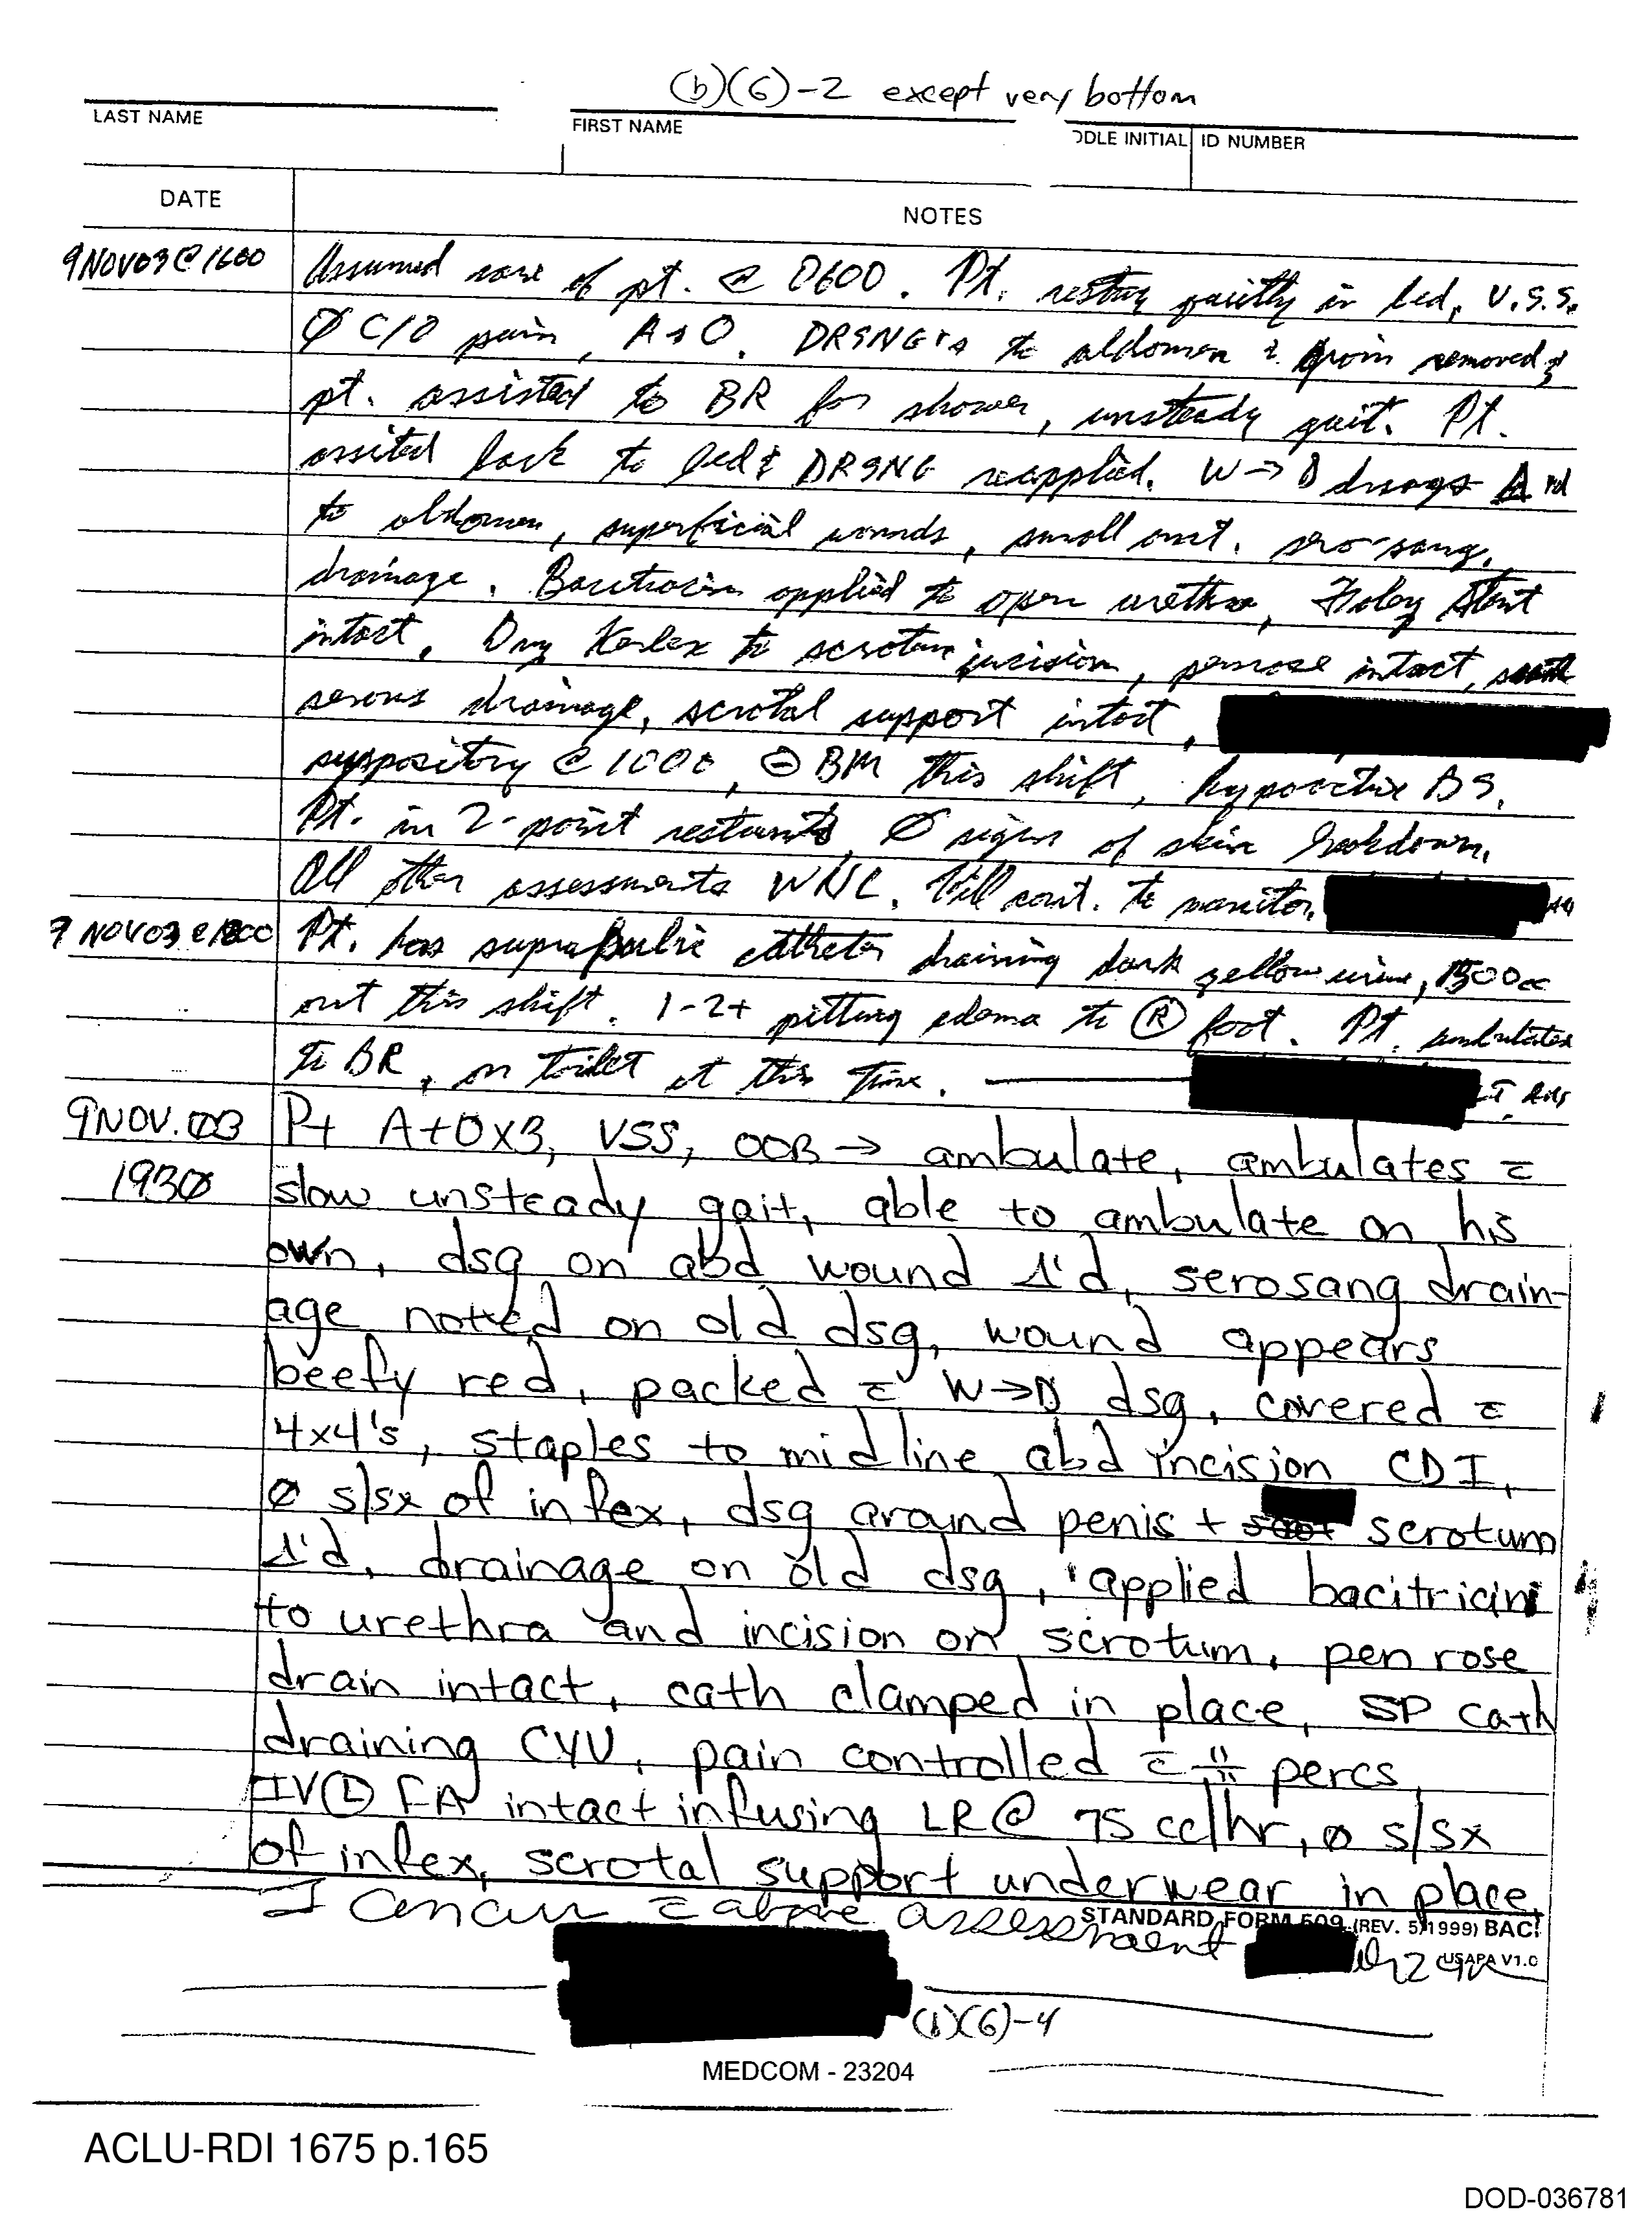 (b)(6)-2 except very bottom
LAST NAME FIRST NAME DDLE INITIAL ID NUMBER
DATE NOTES
9NOV03@1600 Assumed care of pt. @ 0600. Pt. resting quietly in bed, V.S.S.
Ø C/O pain, A+O. DRSNG's to abdomen & groin removed &
pt. assisted to BR for shower, unsteady gait. Pt.
assited back to bed & DRSNG reapplied. W→D
to abdomen, superficial wounds, small amt. sero-sang.
drainage. Bacitracin applied to open urethra, Foley Stent
intact. Dry Kerlex to scrotum incision, penrose intact,
serous drainage, scrotal support intact,
suppository @ 1000, ⊖ BM this shift, hypoactive BS.
Pt. in 2-point restraints, Ø signs of skin breakdown.
All other assessments WNL. Will cont. to monitor.
9 NOV03 @1800 Pt. has suprapubic catheter draining dark yellow urine, 1500cc
out this shift. 1-2+ pitting edema to Ⓡ foot. Pt. ambulates
to BR, on toilet at this time.
9NOV.03 Pt A+OX3, VSS, OOB → ambulate, ambulates c̄
1930 slow unsteady gait, able to ambulate on his
own, dsg on abd wound Δ'd, serosang drain-
age noted on old dsg, wound appears
beefy red, packed c̄ W→D dsg, covered c̄
4x4's, staples to midline abd incision CDI,
Ø s/sx of infex, dsg around penis + scrotum
Δ'd, drainage on old dsg, applied bacitricin
to urethra and incision on scrotum, penrose
drain intact, cath clamped in place, SP cath
draining CYU, pain controlled c̄ ii percs,
IV Ⓛ FA intact infusing LR @ 75 cc/hr, Ø s/sx
of infex, scrotal support underwear in place,
I concur c̄ above assessment
STANDARD FORM 509 (REV. 5/1999) BACK
USAPA V1.0
(b)(6)-4
MEDCOM - 23204
ACLU-RDI 1675 p.165
DOD-036781